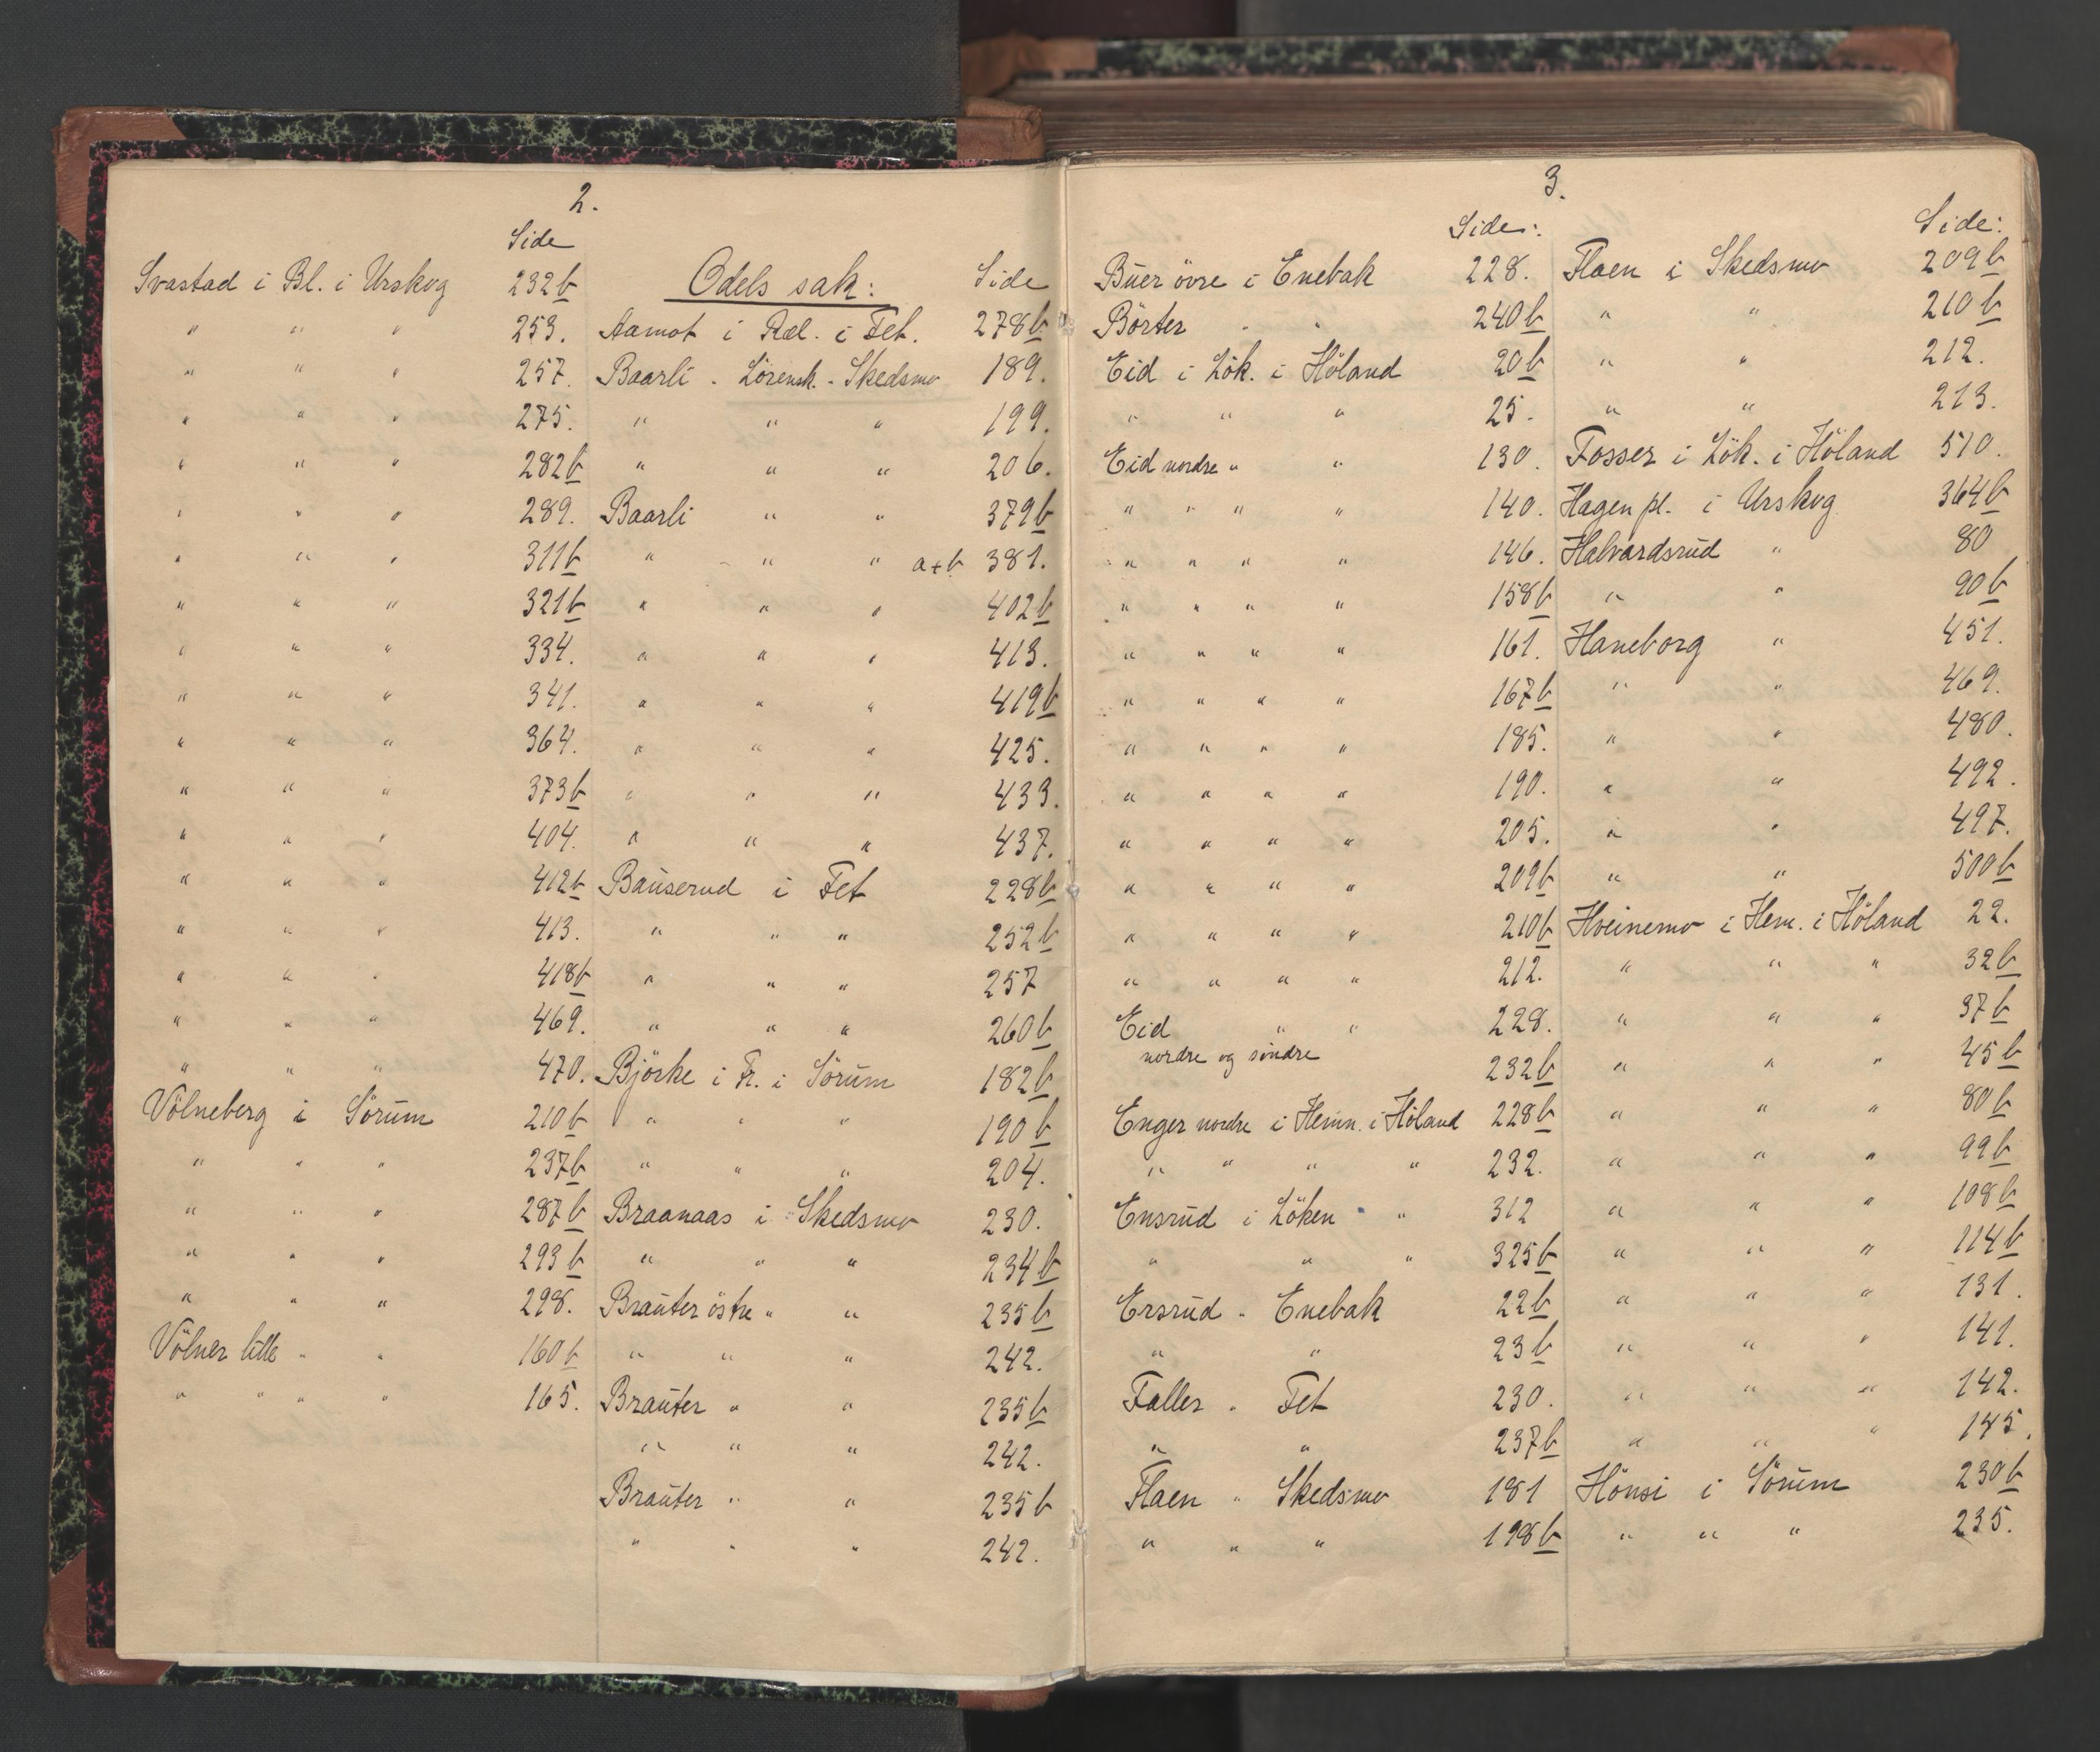 2.
Side
Svastad i Bl. i Urskog 232b
" " " 253.
" " " 257.
" " " 275.
" " " 282b
" " " 289.
" " " 311b
" " " 321b
" " " 334.
" " " 341.
" " " 364.
" " " 373b
" " " 404.
" " " 412b
" " " 413.
" " " 418b
" " " 469.
" " " 470.
Völneberg i Sörum 210b
" " " 237b
" " " 287b
" " " 293b
" " " 298.
Völner lille " " 160b
" " " " 165.
Odels sak: Side
Aamot i Ræl. i Fet. 278b
Baarli " Lörensk. " Skedsmo 189.
" " " 199.
" " " 206.
Baarli " " 379b
" " " a+b 381.
" " " 402b
" " " 413.
" " " 419b
" " " 425.
" " " 433.
" " " 437.
Bauserud i Fet 228b
" " " 252b
" " " 257
" " " 260b
Björke i Fr. i Sörum 182b
" " " 190b
" " " 204.
Braanaas i Skedsmo 230.
" " " 234b
Brauter östre " " 235b
" " " 242.
Brauter " " 235b
" " " 242.
Brauter " " 235b
" " " 242.
3.
Side:
Buer övre i Enebak 228.
Börter " " 240b
Eid i Lök. i Höland 20b
" " " 25.
Eid nordre " " 130.
" " " " 140.
" " " " 146.
" " " " 158b
" " " " 161.
" " " " 167b
" " " " 185.
" " " " 190.
" " " " 205.
" " " " 209b
" " " " 210b
" " " " 212.
Eid " " 228.
nordre og söndre 232b
Enger nordre i Hemn. i Höland 228b
" " " " 232.
Ensrud i Löken " " 312
" " " 325b
Ersrud " Enebak 22b
" " 23b
Faller " Fet 230.
" " 237b
Flaen " Skedsmo 181
" " " 198b
Side:
Flaen i Skedsmo 209b
" " 210b
" " 212.
" " 213.
Fosser i Lök. i Höland 510.
Hagen pl. i Urskog 364b
Halvardsrud " 80
" " 90b
Haneborg " 451.
" " 469.
" " 480.
" " 492.
" " 497.
" " 500b
Hveinemo i Hem. i Höland 22.
" " " 32b
" " " 37b
" " " 45b
" " " 80b
" " " 99b
" " " 108b
" " " 114b
" " " 131.
" " " 141.
" " " 142.
" " " 145.
Hönsi i Sörum 230b
" " " 235.